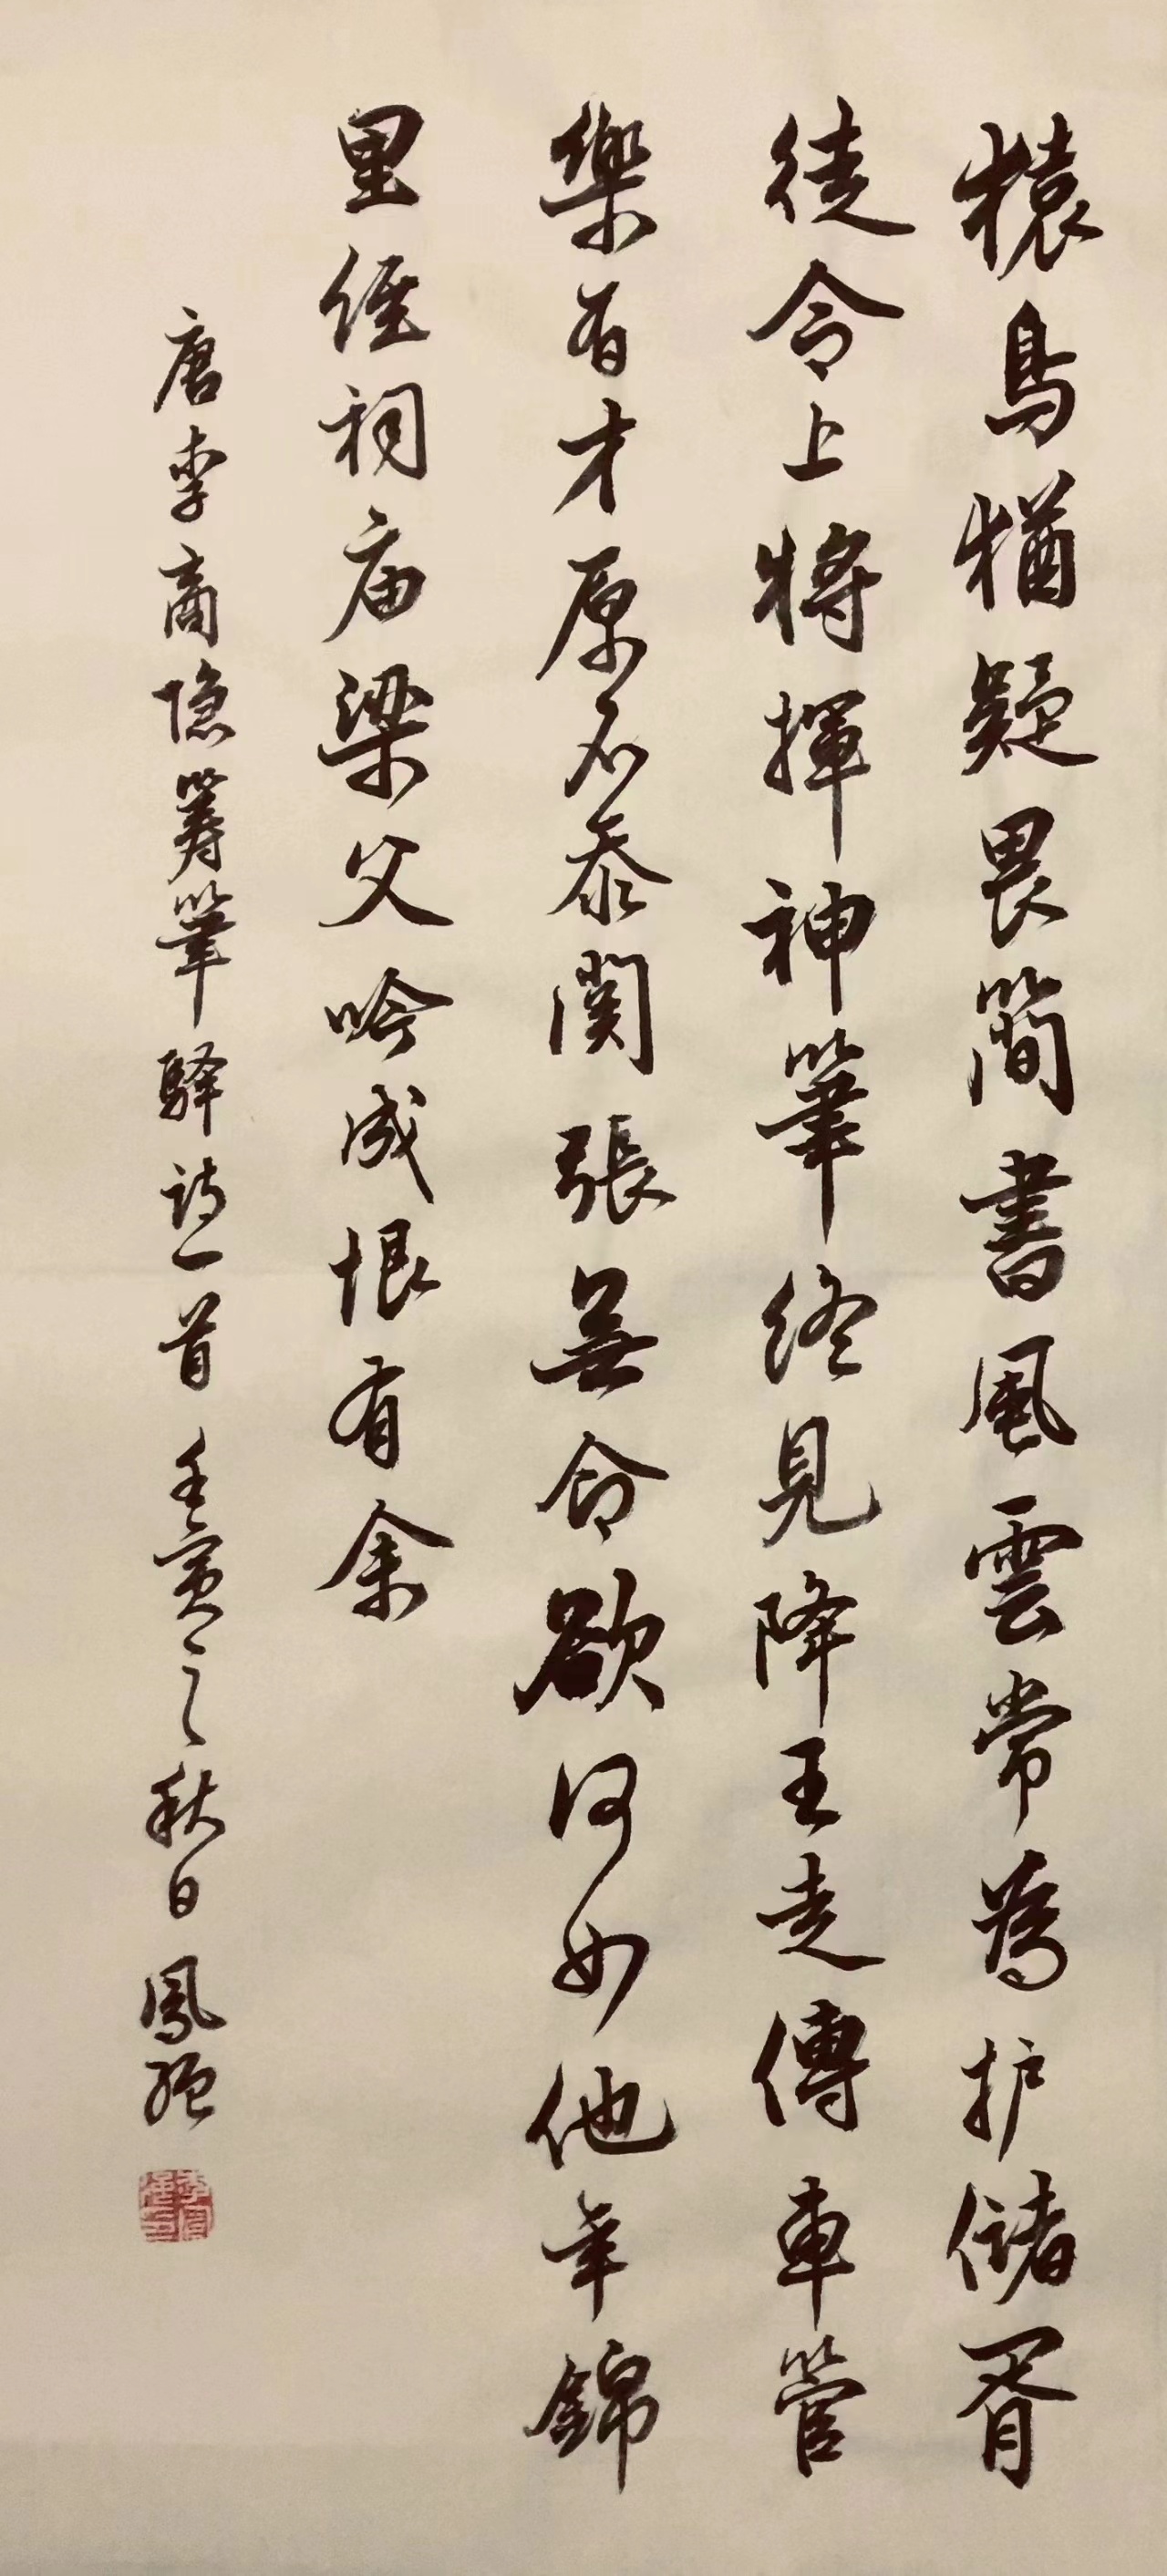 猿鳥猶疑畏簡書風雲常為护儲胥
徒令上將揮神筆終見降王走傳車管
樂有才原不忝関張無命欲何如他年錦
里經祠庙梁父吟成恨有余
唐李商隐筹筆驿诗一首壬寅之秋日鳳强